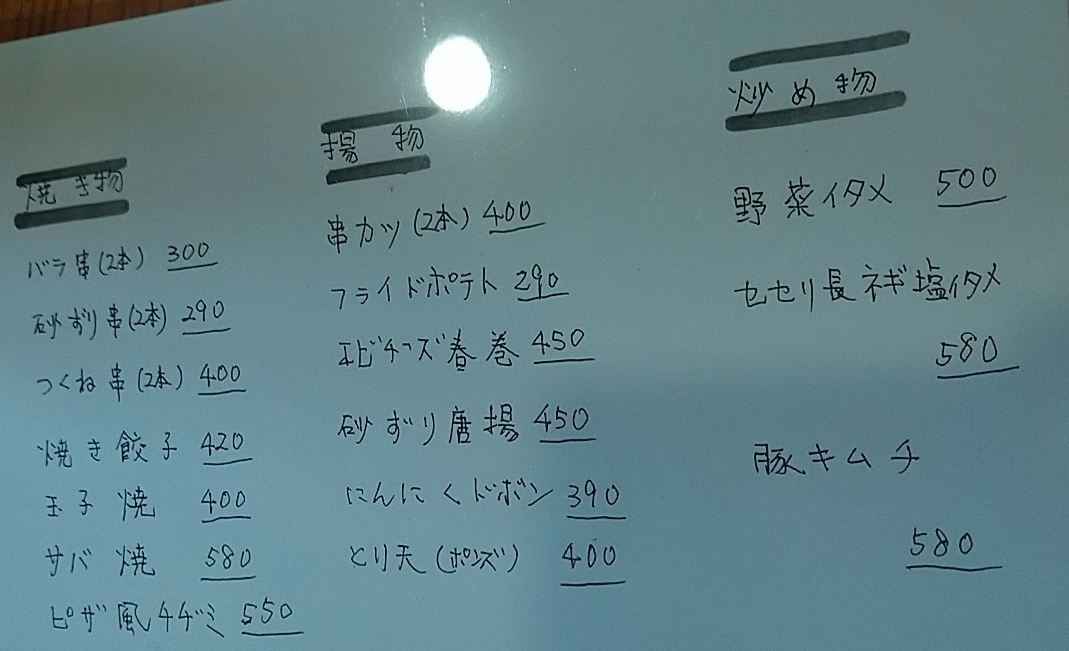 焼き物
バラ串(2本) 300
砂ずり串(2本) 290
つくね串(2本) 400
焼き餃子 420
玉子焼 400
サバ焼 580
ピザ風チヂミ 550
揚物
串カツ(2本) 400
フライドポテト 290
エビチーズ春巻 450
砂ずり唐揚 450
にんにくドボン 390
とり天(ポンズ) 400
炒め物
野菜イタメ 500
セセリ長ネギ塩イタメ
580
豚キムチ
580